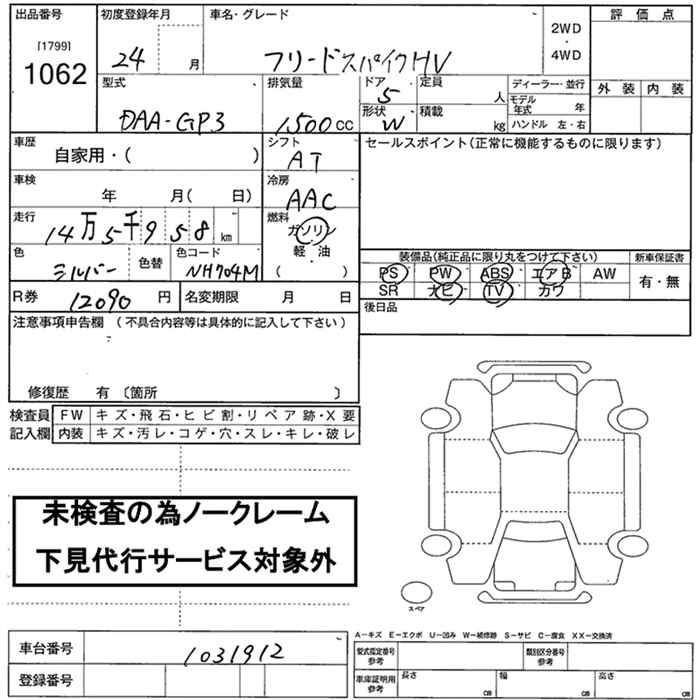 出品番号 初度登録年月 車名・グレード 評価点
[1799]
1062
24 月 フリードスパイクHV 2WD・4WD
外装 内装
型式 排気量 ドア 定員 ディーラー・並行
DAA-GP3 1,500cc 5 人 モデル年式 年
形状 W 積載 kg ハンドル 左・右
車歴 シフト セールスポイント(正常に機能するものに限ります)
自家用・( ) AT
車検 冷房
年 月( 日) AAC
走行 燃料
14万5千958km ガソリン
軽油
( )
色 色替 色コード 装備品(純正品に限り丸をつけて下さい) 新車保証書
シルバー NH704M PS PW ABS エアB AW 有・無
SR ナビ TV カワ
R券 12090円 名変期限 月 日 後日品
注意事項申告欄(不具合内容等は具体的に記入して下さい)
修復歴 有〔箇所 〕
検査員 FW キズ・飛石・ヒビ割・リペア跡・X要
記入欄 内装 キズ・汚レ・コゲ・穴・スレ・キレ・破レ
未検査の為ノークレーム
下見代行サービス対象外
スペア
A-キズ E-エクボ U-凹み W-補修跡 S-サビ C-腐食 XX-交換済
車台番号 1031912 型式指定番号 参考 類別区分番号 参考
登録番号 車庫証明用 参考 長さ cm 幅 cm 高さ cm